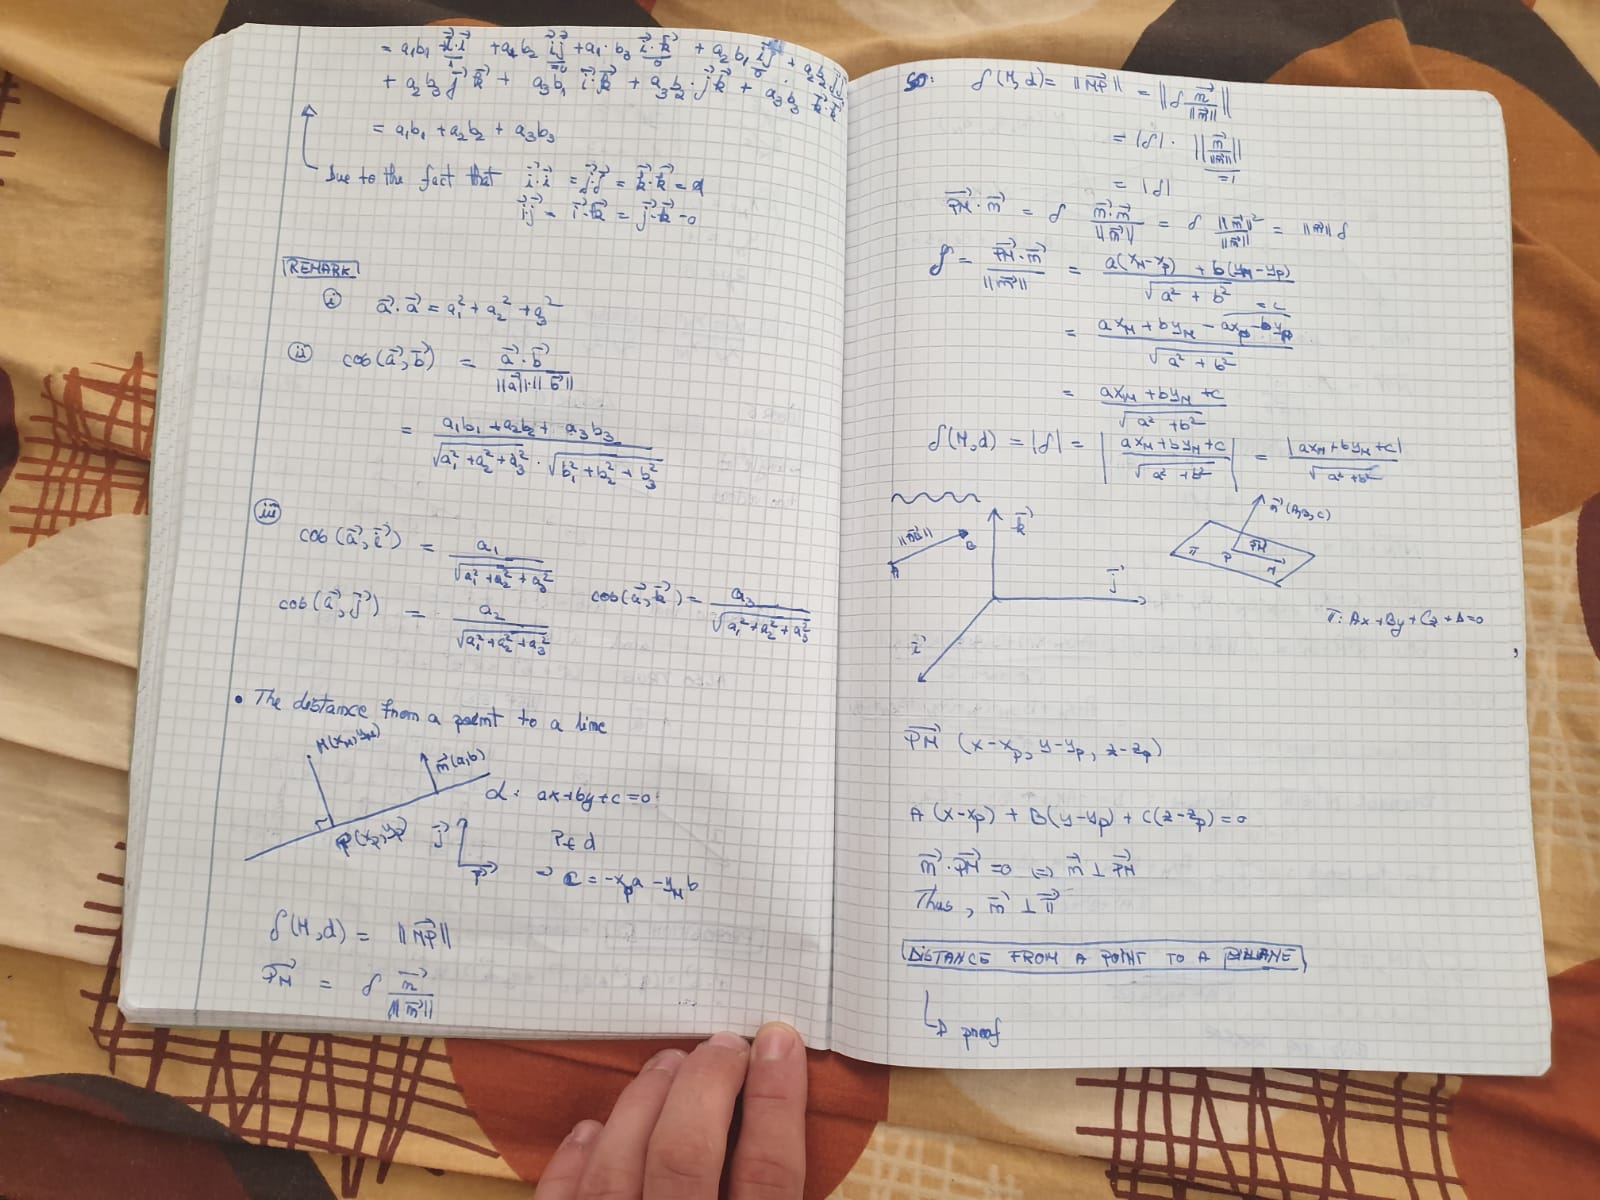 = a₁b₁ i⃗·i⃗ + a₁b₂ i⃗j⃗ + a₁·b₃ i⃗·k⃗ + a₂b₁ i⃗j⃗ + a₂b₂ j⃗j⃗
1 =0 0 0
+ a₂b₃ j⃗ k⃗ + a₃b₁ i⃗·k⃗ + a₃b₂·j⃗k⃗ + a₃b₃ k⃗·k⃗
= a₁b₁ + a₂b₂ + a₃b₃
Due to the fact that i⃗·i⃗ = j⃗·j⃗ = k⃗·k⃗ = 1
i⃗·j⃗ = i⃗·k⃗ = j⃗·k⃗ = 0
REMARK
(i) a⃗·a⃗ = a₁² + a₂² + a₃²
(ii) cos(a⃗,b⃗) = a⃗·b⃗ / ||a⃗||·||b⃗||
= a₁b₁ + a₂b₂ + a₃b₃ / √(a₁² + a₂² + a₃²) · √(b₁² + b₂² + b₃²)
(iii) cos(a⃗,i⃗) = a₁ / √(a₁² + a₂² + a₃²)
cos(a⃗,j⃗) = a₂ / √(a₁² + a₂² + a₃²) cos(a⃗,k⃗) = a₃ / √(a₁² + a₂² + a₃²)
• The distance from a point to a line
M(x_M, y_M)
n⃗(a,b)
d: ax+by+c=0
P(x_P, y_P) j⃗ P∈d
i⃗ → c = -x_P a - y_M b
δ(M,d) = ||M⃗P||
P⃗M = δ n⃗ / ||n⃗||
SO: δ(M,d) = ||M⃗P|| = ||δ n⃗ / ||n⃗|| ||
= |δ| · || n⃗ / ||n⃗|| ||
=1
= |δ|
P⃗M·n⃗ = δ n⃗·n⃗ / ||n⃗|| = δ ||n⃗||² / ||n⃗|| = ||n⃗|| δ
δ = P⃗M·n⃗ / ||n⃗|| = a(x_M-x_P) + b(y_M-y_P) / √(a² + b²)
=c
= ax_M + by_M - ax_P - by_P / √(a² + b²)
= ax_M + by_M + c / √(a² + b²)
δ(M,d) = |δ| = | ax_M + by_M + c / √(a² + b²) | = |ax_M + by_M + c| / √(a² + b²)
||A⃗B|| B k⃗ n⃗(A,B,C)
A j⃗ π P P⃗M M
i⃗ π: Ax + By + Cz + D = 0
P⃗M (x-x_P, y-y_P, z-z_P)
A(x-x_P) + B(y-y_P) + C(z-z_P) = 0
n⃗·P⃗M = 0 ⇔ n⃗ ⊥ P⃗M
Thus, n⃗ ⊥ π⃗
DISTANCE FROM A POINT TO A PLANE
proof